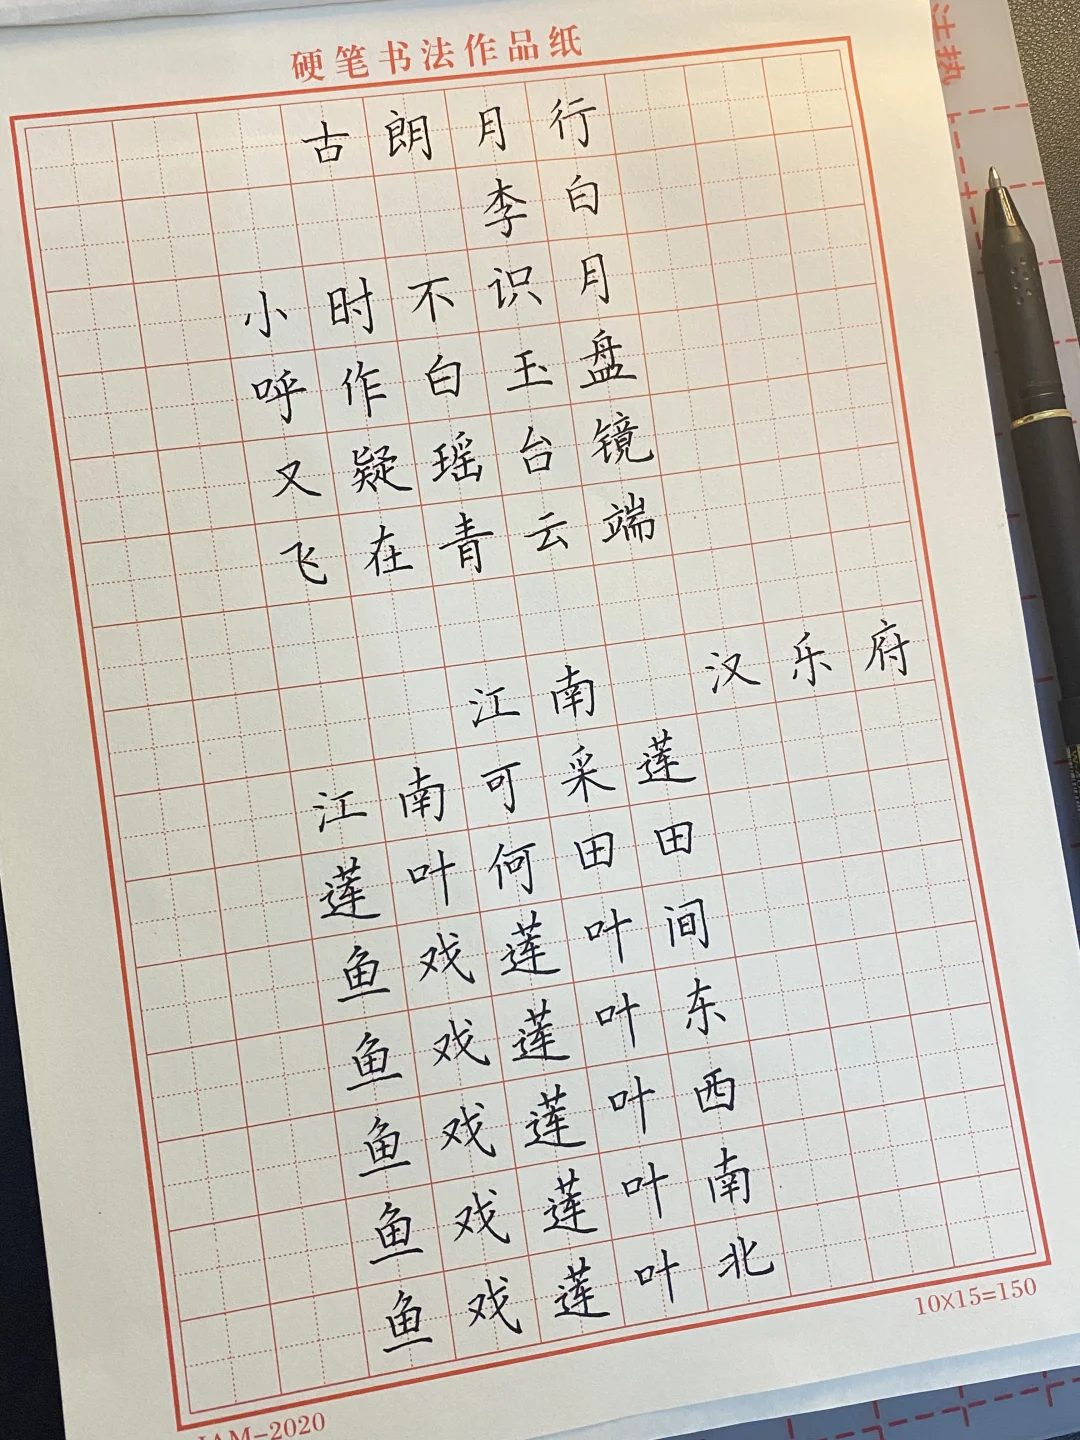 硬笔书法作品纸
古朗月行
李白
小时不识月
呼作白玉盘
又疑瑶台镜
飞在青云端
江南 汉乐府
江南可采莲
莲叶何田田
鱼戏莲叶间
鱼戏莲叶东
鱼戏莲叶西
鱼戏莲叶南
鱼戏莲叶北
10X15=150
AM-2020